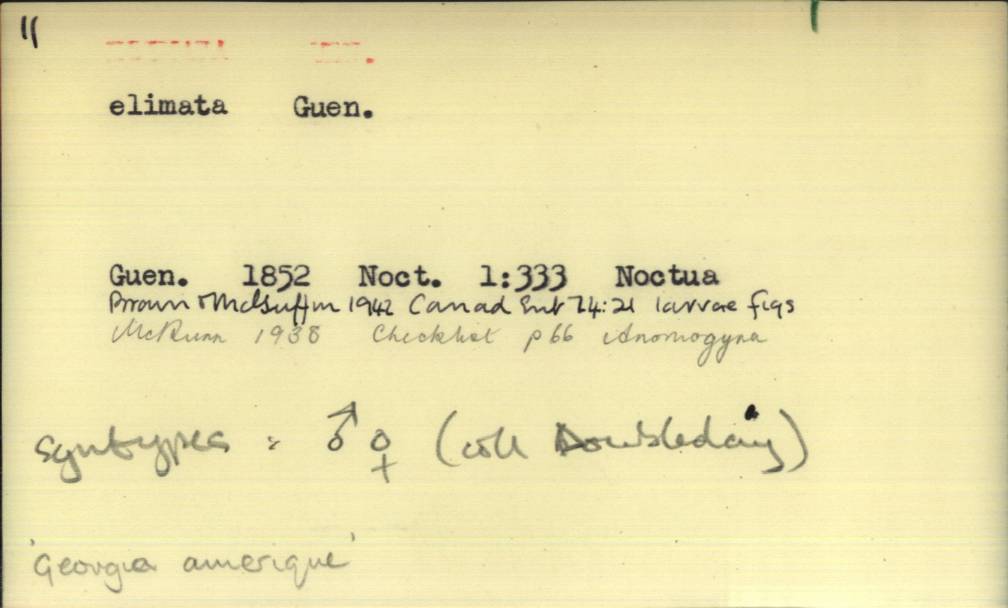 elimata Guen.
Guen. 1852 Noct. 1:333 Noctua
Brown & McGuffin 1942 Canad Ent 74:21 larvae figs
McDunn 1938 Checklist p 66 Anomogyna
Syntypes : ♂ ♀ (coll Doubleday)
'Georgia amerique'